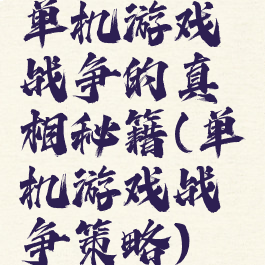 单机游戏
战争的真
相秘籍(单
机游戏战
争策略)